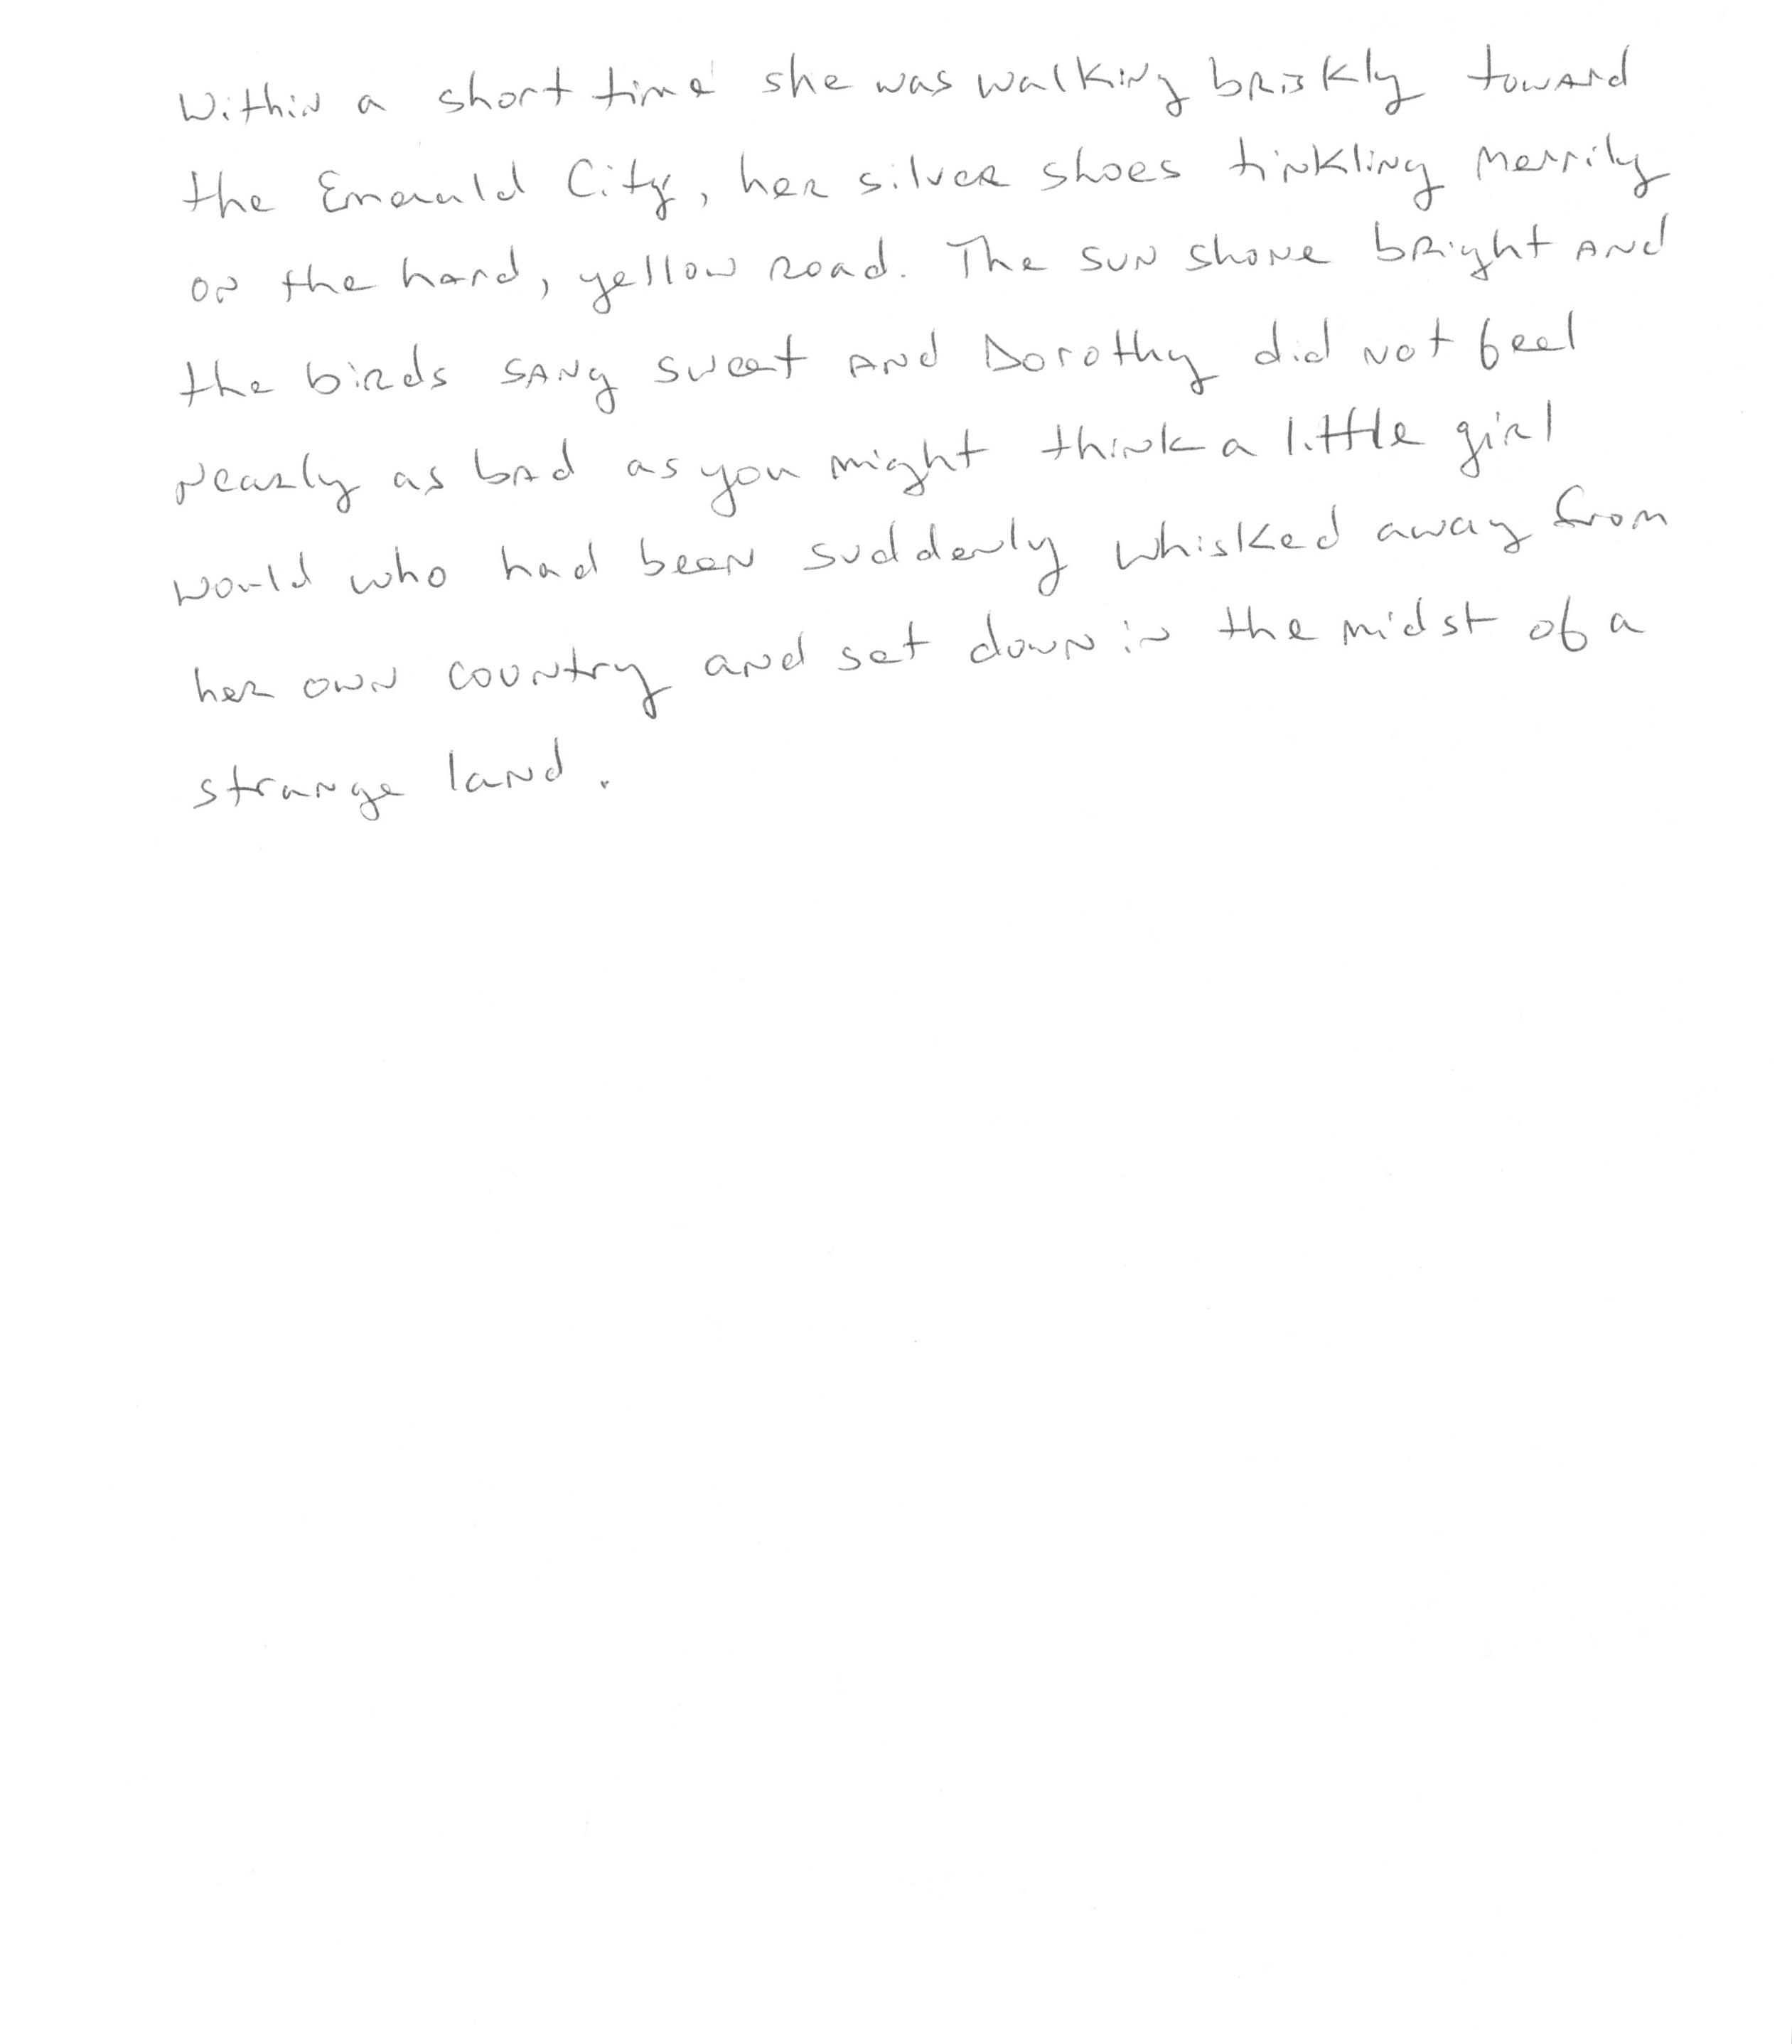 Within a short time she was walking briskly toward
the Emerald City, her silver shoes tinkling merrily
on the hard, yellow road. The sun shone bright and
the birds sang sweet and Dorothy did not feel
nearly as bad as you might think a little girl
would who had been suddenly whisked away from
her own country and set down in the midst of a
strange land.